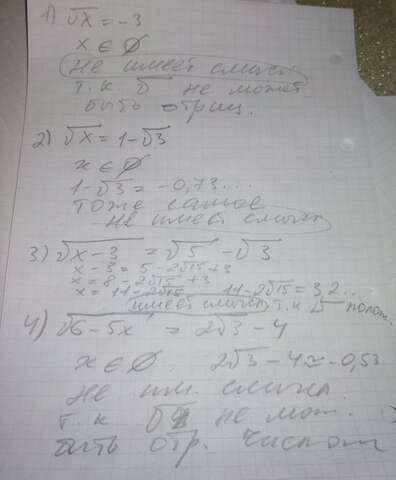 1) √x = -3
x ∈ ∅
Не имеет смысла
т.к. √ не может
быть отриц.
2) √x = 1-√3
x ∈ ∅
1-√3 = -0,73...
тоже самое
не имеет смысла
3) √x-3 = √5 - √3
x-3 = 5-2√15+3
x = 8-2√15+3
x = 11-2√15 11-2√15 = 3,2...
имеет смысл т.к. √ полож.
4) √6-5x = 2√3-4
x ∈ ∅. 2√3-4≈-0,53
Не им. смысл.
т.к. √ не мож.
быть отр. числом